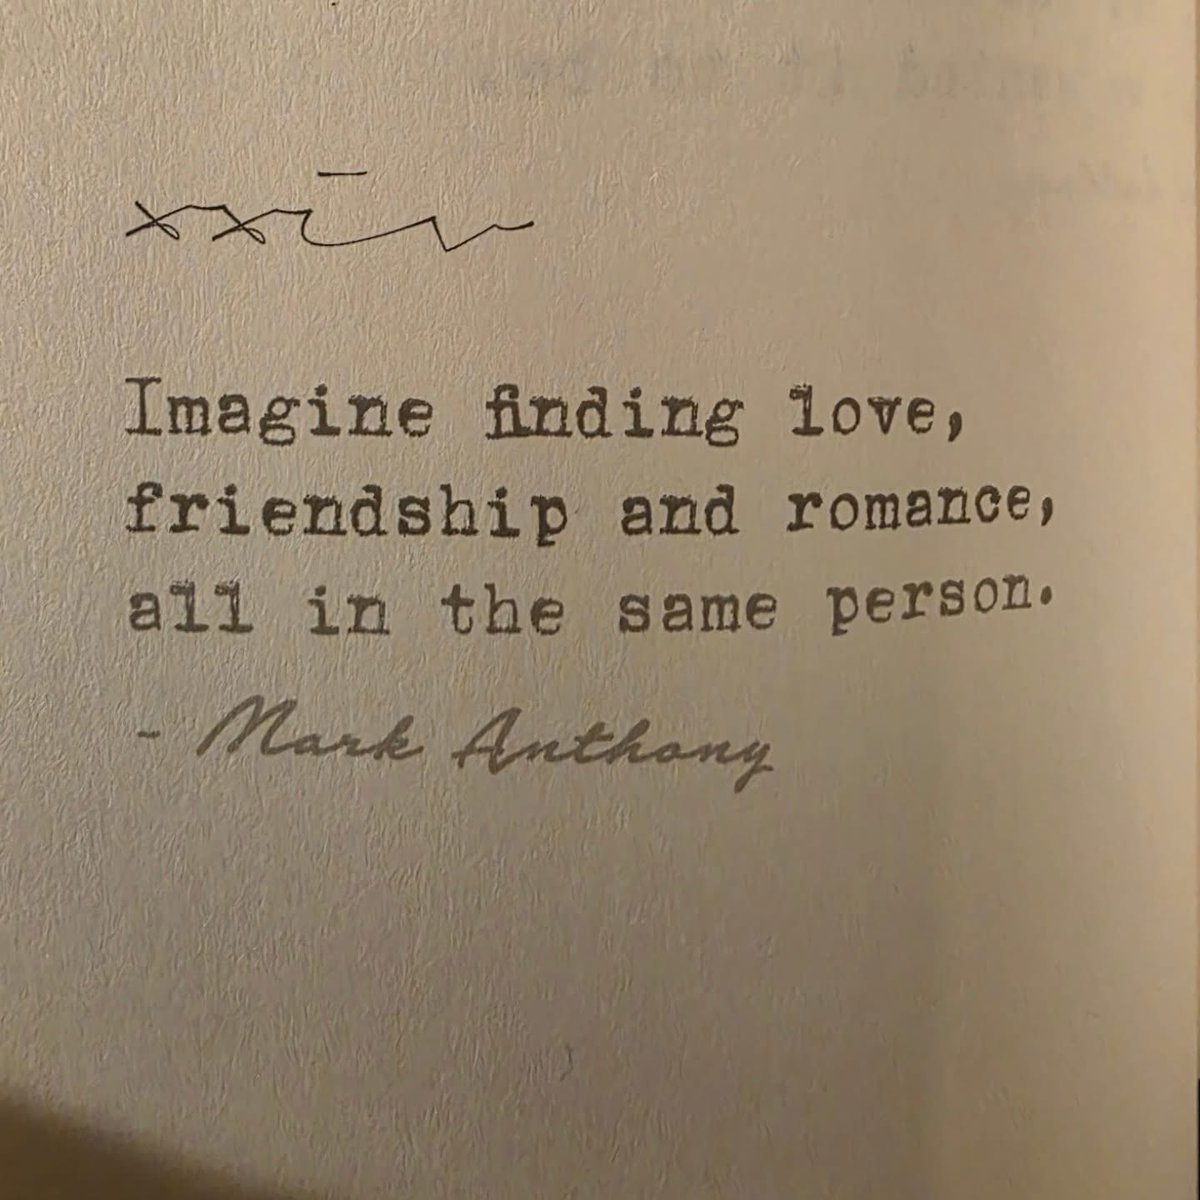 Imagine finding love,
friendship and romance,
all in the same person.
- Mark Anthony